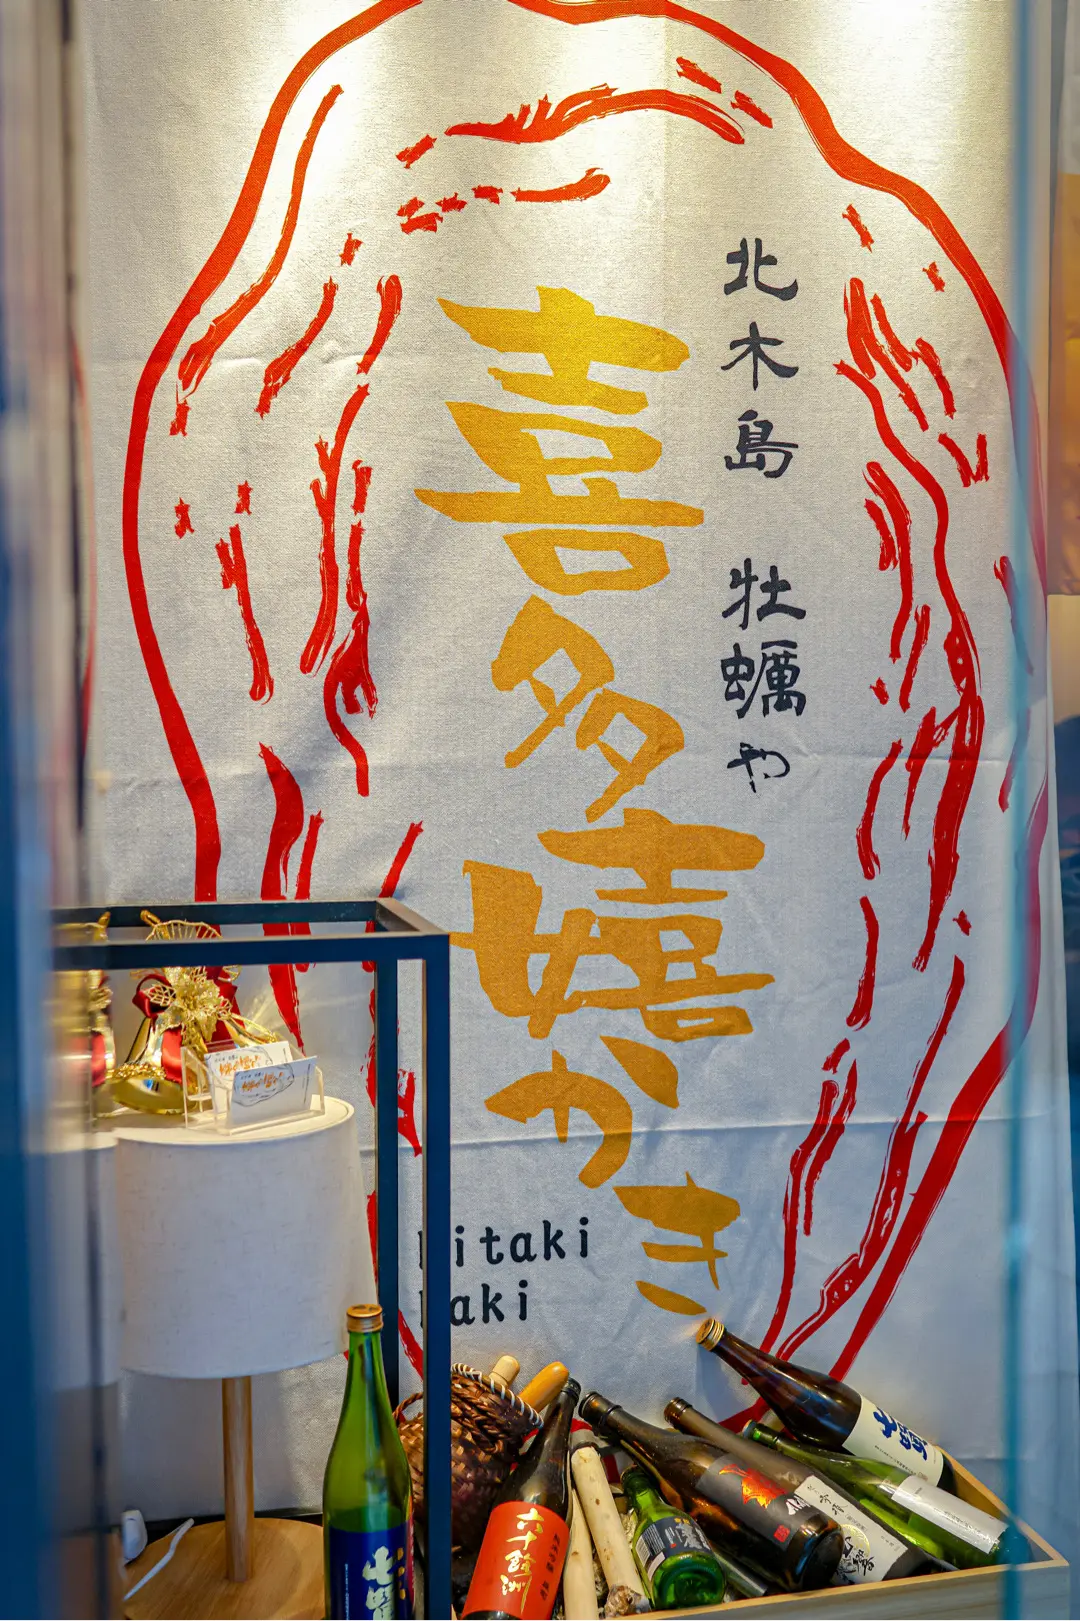 北木島 牡蠣や
喜多嬉かき
itaki
aki
六十餘洲
七賢